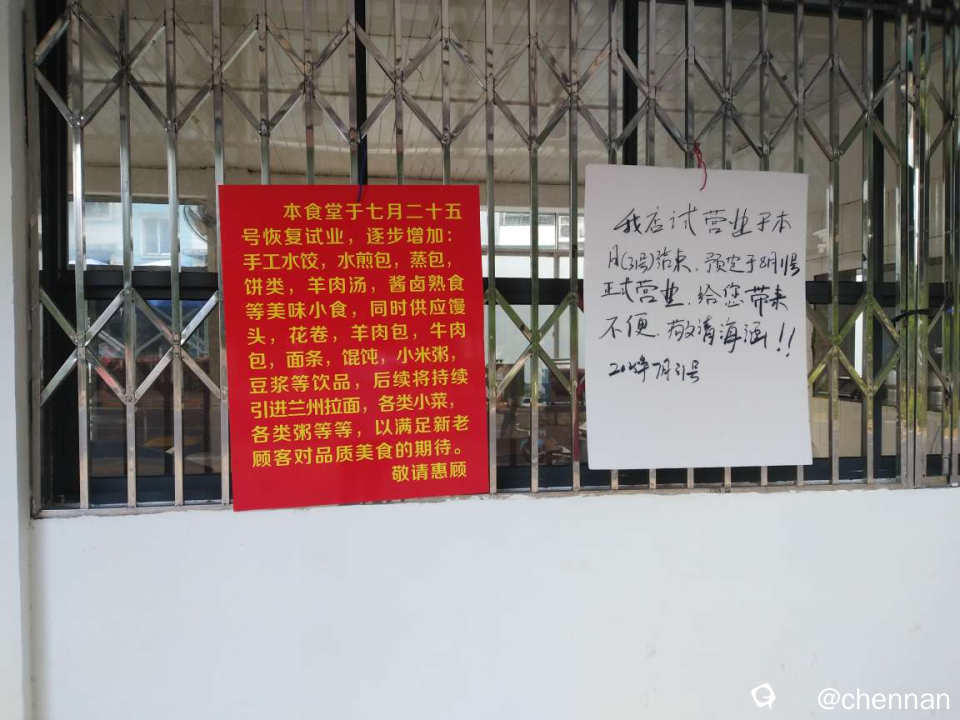 本食堂于七月二十五
号恢复试业，逐步增加：
手工水饺，水煎包，蒸包，
饼类，羊肉汤，酱卤熟食
等美味小食，同时供应馒
头，花卷，羊肉包，牛肉
包，面条，馄饨，小米粥，
豆浆等饮品，后续将持续
引进兰州拉面，各类小菜，
各类粥等等，以满足新老
顾客对品质美食的期待。
敬请惠顾
我店试营业于本
月(31号)结束．预定于8月9号
正式营业．给您带来
不便．敬请海涵！！
7月31号
@chennan